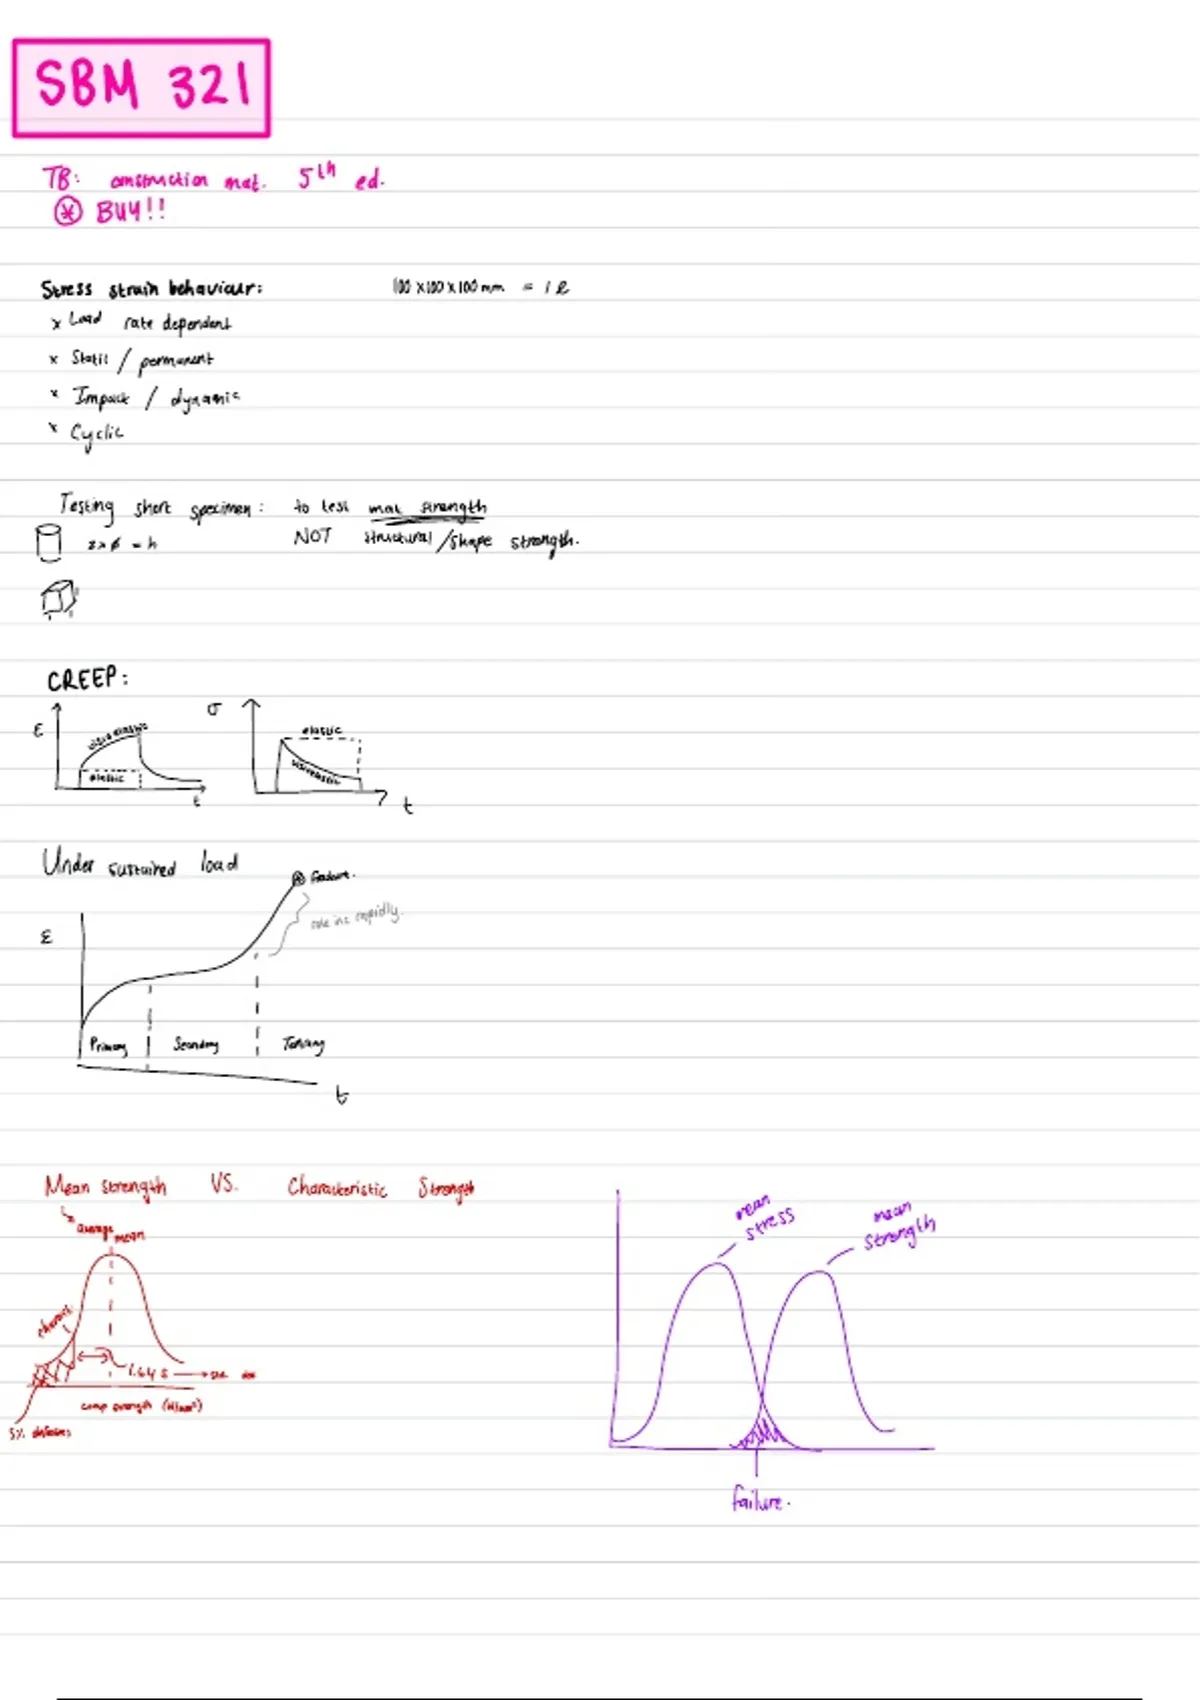 SBM 321
TB: construction mat. 5th ed.
* BUY!!
Stress strain behaviour: 100 x 100 x 100 mm = 1 l
x Load rate dependent
x Static / permanent
x Impact / dynamic
x Cyclic
Testing short specimen: to test mat strength
2 x ø = h NOT structural/shape strength.
CREEP:
ε viscoelastic elastic t
σ elastic viscoelastic t
Under sustained load
failure.
rate inc rapidly.
ε
Primary Secondary Tertiary
t
Mean strength VS. Characteristic Strength
average mean
charact.
1.64 s → std dev
comp strength (N/mm²)
5% defectives
mean stress
mean strength
failure.